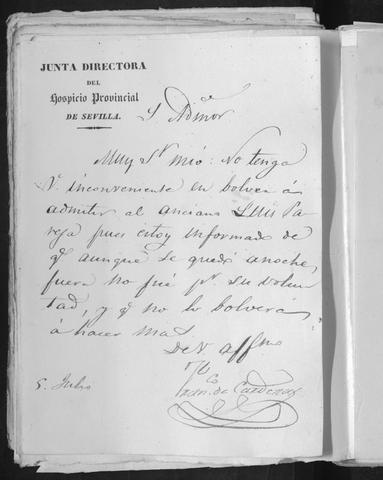 JUNTA DIRECTORA
DEL
Hospicio Provincial
DE SEVILLA.
S. Admor.
Muy Sr. mio: No tenga
V. inconveniente en bolver á
admitir al anciano Luis Pa-
rega pues estoy informado de
q.e aunque se quedó anoche,
fuera no fué p.r su volun
tad, y q.e no lo bolverá
á hacer mas
De V. affmo
5. Julio
de Cardenas